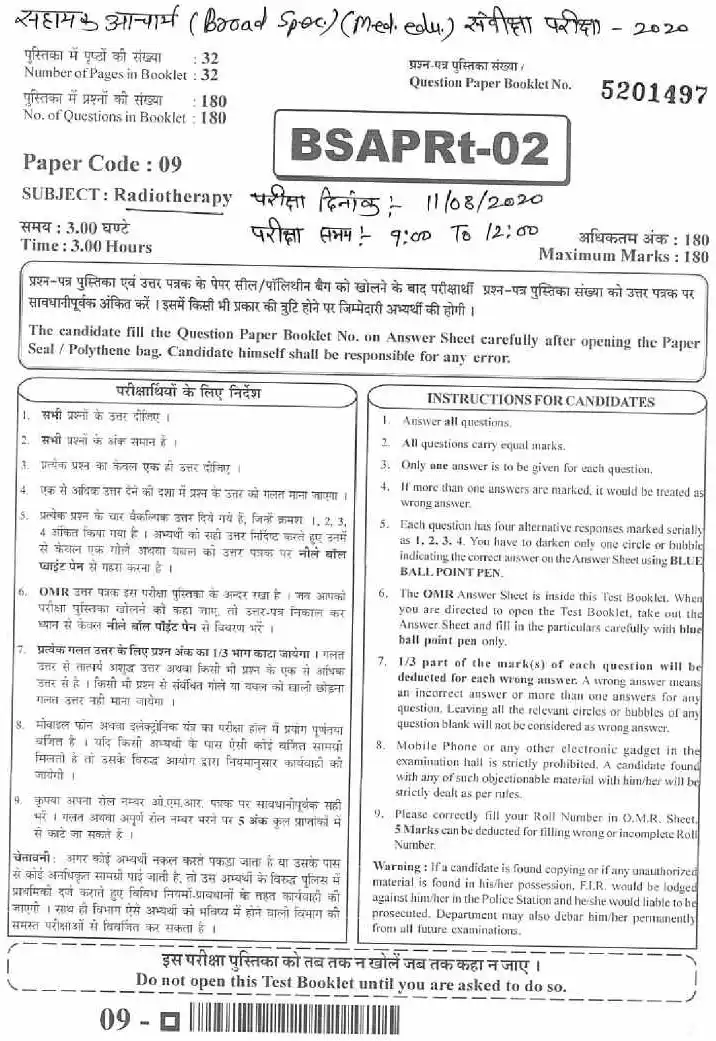 सहायक आचार्य (Broad Spec.) (Med. edu.) संवीक्षा परीक्षा - 2020
पुस्तिका में पृष्ठों की संख्या : 32
Number of Pages in Booklet : 32
पुस्तिका में प्रश्नों की संख्या : 180
No. of Questions in Booklet : 180
प्रश्न-पत्र पुस्तिका संख्या /
Question Paper Booklet No.
5201497
BSAPRt-02
Paper Code : 09
SUBJECT : Radiotherapy
परीक्षा दिनांक :- 11/08/2020
परीक्षा समय :- 9:00 To 12:00
समय : 3.00 घण्टे
Time : 3.00 Hours
अधिकतम अंक : 180
Maximum Marks : 180
प्रश्न-पत्र पुस्तिका एवं उत्तर पत्रक के पेपर सील/पॉलिथीन बैग को खोलने के बाद परीक्षार्थी प्रश्न-पत्र पुस्तिका संख्या को उत्तर पत्रक पर
सावधानीपूर्वक अंकित करें । इसमें किसी भी प्रकार की त्रुटि होने पर जिम्मेदारी अभ्यर्थी की होगी ।
The candidate fill the Question Paper Booklet No. on Answer Sheet carefully after opening the Paper
Seal / Polythene bag. Candidate himself shall be responsible for any error.
परीक्षार्थियों के लिए निर्देश
1. सभी प्रश्नों के उत्तर दीजिए ।
2. सभी प्रश्नों के अंक समान है ।
3. प्रत्येक प्रश्न का केवल एक ही उत्तर दीजिए ।
4. एक से अधिक उत्तर देने की दशा में प्रश्न के उत्तर को गलत माना जाएगा ।
5. प्रत्येक प्रश्न के चार वैकल्पिक उत्तर दिये गये हैं, जिन्हें क्रमश: 1, 2, 3,
4 अंकित किया गया है । अभ्यर्थी को सही उत्तर निर्दिष्ट करते हुए उनमें
से केवल एक गोले अथवा बबल को उत्तर पत्रक पर नीले बॉल
प्वाइंट पेन से गहरा करना है ।
6. OMR उत्तर पत्रक इस परीक्षा पुस्तिका के अन्दर रखा है । जब आपको
परीक्षा पुस्तिका खोलने को कहा जाए, तो उत्तर-पत्र निकाल कर
ध्यान से केवल नीले बॉल पॉइंट पेन से विवरण भरें ।
7. प्रत्येक गलत उत्तर के लिए प्रश्न अंक का 1/3 भाग काटा जायेगा । गलत
उत्तर से तात्पर्य अशुद्ध उत्तर अथवा किसी भी प्रश्न के एक से अधिक
उत्तर से है । किसी भी प्रश्न से संबंधित गोले या बबल को खाली छोड़ना
गलत उत्तर नही माना जायेगा ।
8. मोबाइल फोन अथवा इलेक्ट्रोनिक यंत्र का परीक्षा हॉल में प्रयोग पूर्णतया
वर्जित है । यदि किसी अभ्यर्थी के पास ऐसी कोई वर्जित सामग्री
मिलती है तो उसके विरुद्ध आयोग द्वारा नियमानुसार कार्यवाही की
जायेगी ।
9. कृपया अपना रोल नम्बर ओ.एम.आर. पत्रक पर सावधानीपूर्वक सही
भरें । गलत अथवा अपूर्ण रोल नम्बर भरने पर 5 अंक कुल प्राप्तांकों में
से काटे जा सकते हैं ।
चेतावनी : अगर कोई अभ्यर्थी नकल करते पकड़ा जाता है या उसके पास
से कोई अनधिकृत सामग्री पाई जाती है, तो उस अभ्यर्थी के विरुद्ध पुलिस में
प्राथमिकी दर्ज कराते हुए विविध नियमों-प्रावधानों के तहत कार्यवाही की
जाएगी । साथ ही विभाग ऐसे अभ्यर्थी को भविष्य में होने वाली विभाग की
समस्त परीक्षाओं से विवर्जित कर सकता है ।
INSTRUCTIONS FOR CANDIDATES
1. Answer all questions.
2. All questions carry equal marks.
3. Only one answer is to be given for each question.
4. If more than one answers are marked, it would be treated as
wrong answer.
5. Each question has four alternative responses marked serially
as 1, 2, 3, 4. You have to darken only one circle or bubble
indicating the correct answer on the Answer Sheet using BLUE
BALL POINT PEN.
6. The OMR Answer Sheet is inside this Test Booklet. When
you are directed to open the Test Booklet, take out the
Answer Sheet and fill in the particulars carefully with blue
ball point pen only.
7. 1/3 part of the mark(s) of each question will be
deducted for each wrong answer. A wrong answer means
an incorrect answer or more than one answers for any
question. Leaving all the relevant circles or bubbles of any
question blank will not be considered as wrong answer.
8. Mobile Phone or any other electronic gadget in the
examination hall is strictly prohibited. A candidate found
with any of such objectionable material with him/her will be
strictly dealt as per rules.
9. Please correctly fill your Roll Number in O.M.R. Sheet.
5 Marks can be deducted for filling wrong or incomplete Roll
Number.
Warning : If a candidate is found copying or if any unauthorized
material is found in his/her possession, F.I.R. would be lodged
against him/her in the Police Station and he/she would liable to be
prosecuted. Department may also debar him/her permanently
from all future examinations.
इस परीक्षा पुस्तिका को तब तक न खोलें जब तक कहा न जाए ।
Do not open this Test Booklet until you are asked to do so.
09 -